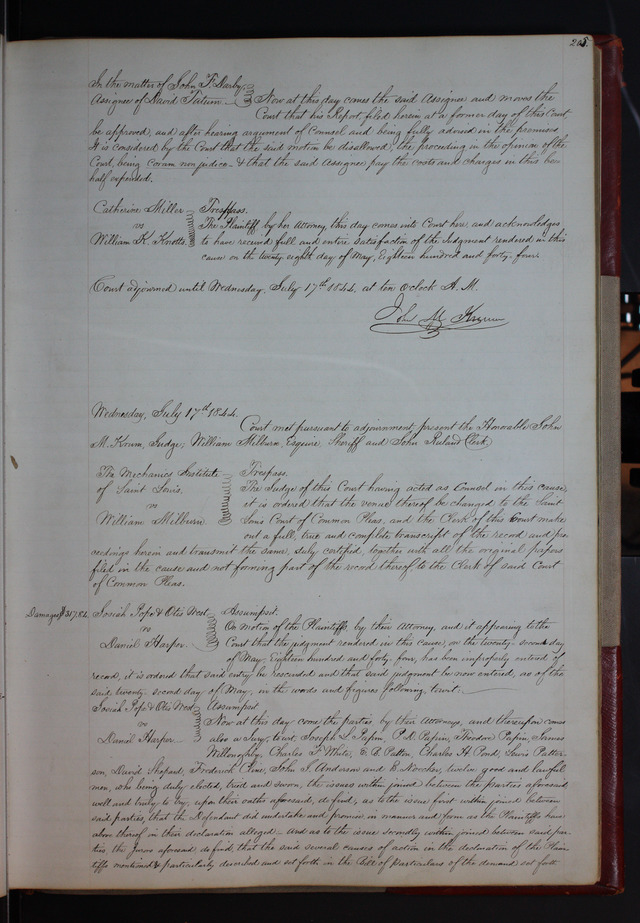 205.
In the matter of John F. Darby,
Assignee of David Tatum
Now at this day comes the said Assignee and moves the
Court that his Report, filed herein at a former day of this Court
be approved, and after hearing argument of Counsel and being fully advised in the premises
It is considered by the Court that the said motion be disallowed, the proceeding in the opinion of the
Court, being coram non judice & that the said Assignee pay the costs and charges in this be-
half expended.
Catherine Miller
vs
William K. Knotts
Trespass.
The Plaintiff by her Attorney this day comes into Court here and acknowledges
to have received full and entire satisfaction of the Judgment rendered in this
cause on the twenty eighth day of May, Eighteen hundred and forty-four.
Court adjourned until Wednesday, July 17th 1844, at ten Oclock A.M.
John M Krum
Wednesday, July 17th 1844.
Court met pursuant to adjournment, present the Honorable John
M. Krum, Judge; William Milburn, Esquire, Sheriff and John Ruland Clerk
The Mechanics Institute
of Saint Louis.
vs
William Milburn
Trespass.
The Judge of this Court having acted as Counsel in this cause,
it is ordered that the venue thereof be changed to the Saint
Louis Court of Common Pleas, and the Clerk of this Court make
out a full, true and complete transcript of the record and pro-
ceedings herein and transmit the same, duly certified, together with all the original papers
filed in the cause and not forming part of the record thereof to the Clerk of said Court
of Common Pleas.
Damages $317.84
Josiah Pope & Otis West
vs
Daniel Harper
Assumpsit.
On Motion of the Plaintiffs by their Attorney, and it appearing to the
Court that the judgment rendered in this cause, on the twenty-second day
of May, Eighteen hundred and forty four, has been improperly entered of
record, it is ordered that said entry be rescinded and that said judgment be now entered, as of the
said twenty-second day of May, in the words and figures following, to wit:
Josiah Pope & Otis West
vs
Daniel Harper
Assumpsit
Now at this day come the parties, by their Attorneys, and thereupon comes
also a Jury, to wit, Joseph L. Papin, P. R. Papin, Theodore Papin, James
Willoughby, Charles F. White, E. B. Patten, Charles H. Pond, Lewis Patter-
son, David Shepard, Frederick Cone, John J. Anderson and B. twelve good and lawful
men, who being duly elected, tried and sworn, the issues within joined between the parties aforesaid
well and truly to try, upon their oaths aforesaid, do find, as to the issue first within joined between
said parties, that the Defendant did undertake and promise in manner and form as the Plaintiffs have
above thereof in their declaration alleged. And as to the issue secondly within joined between said par-
ties, the Jurors aforesaid do find, that the said several causes of action in the declaration of the Plain-
tiffs mentioned & particularly described and set forth in the Bill of particulars of the demand set forth